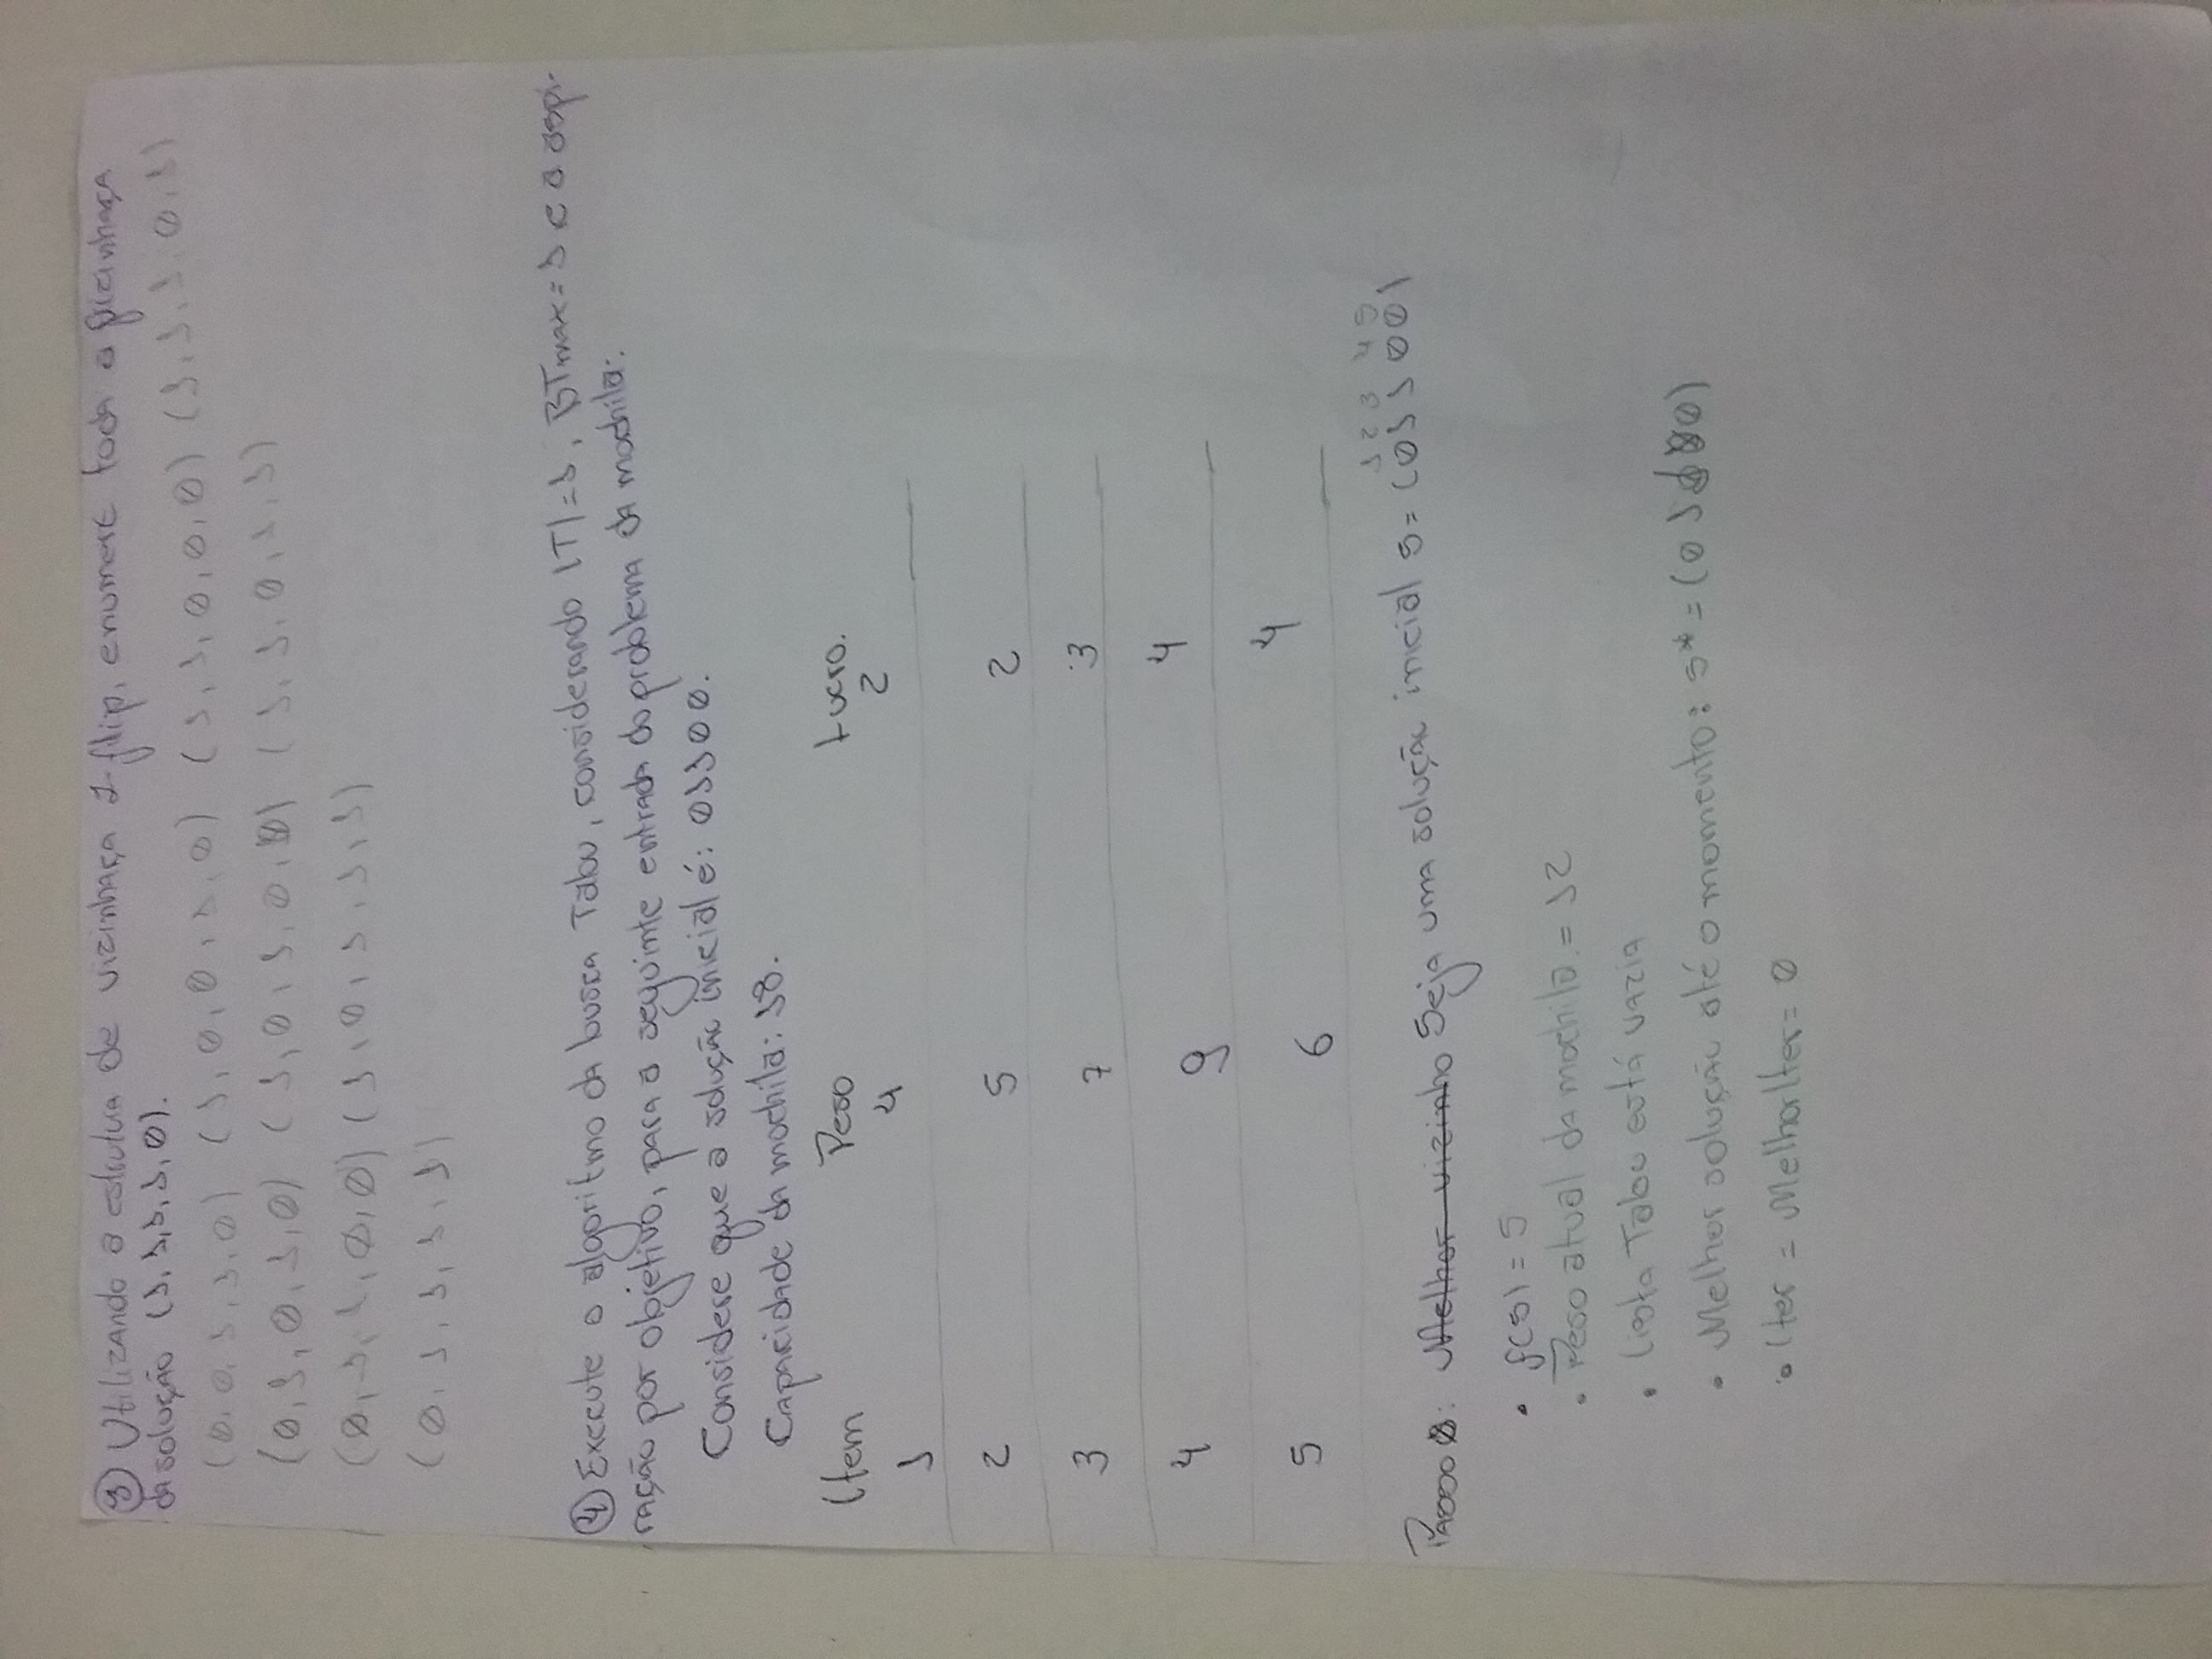 ③ Utilizando a estrutura de vizinhaça 2-flip, enumere toda a vizinhaça
da solução (1,1,1,1,0).
(0,0,1,1,0) (1,0,0,1,0) (1,1,0,0,0) (1,1,1,0,1)
(0,1,0,1,0) (1,0,1,0,0) (1,1,0,1,1)
(0,1,1,0,0) (1,0,1,1,1)
(0,1,1,1,1)
④ Execute o algoritmo da busca Tabu, considerando |T|=1, BTmax=1 e a aspi-
ração por objetivo, para a seguinte entrada do problema da mochila:
Considere que a solução inicial é: 01100.
Capacidade da mochila: 18.
Item Peso Lucro.
1 4 2
2 5 2
3 7 3
4 9 4
5 6 4
1 2 3 4 5
Passo 0: Melhor vizinho Seja uma solução inicial s=(01100)
• f(s) = 5
• Peso atual da mochila = 12
• Lista Tabu está vazia
• Melhor solução até o momento: s* = (01 0)
• Iter = MelhorIter = 0